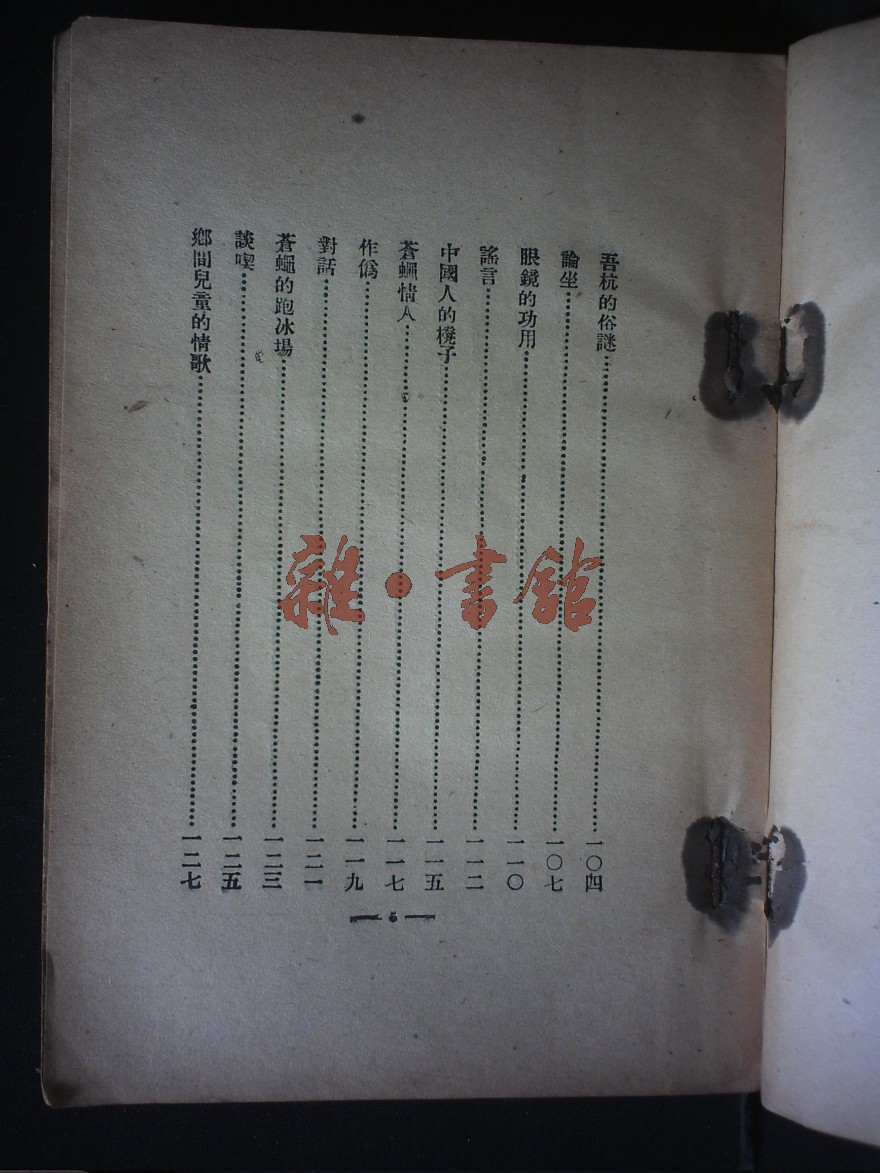 吾杭的俗謎…………一〇四
論坐…………一〇七
眼鏡的功用…………一一〇
謠言…………一一二
中國人的櫈子…………一一五
蒼蠅情人…………一一七
作僞…………一一九
對話…………一二一
蒼蠅的跑冰場…………一二三
談喫…………一二五
鄉間兒童的情歌…………一二七
雜·書館